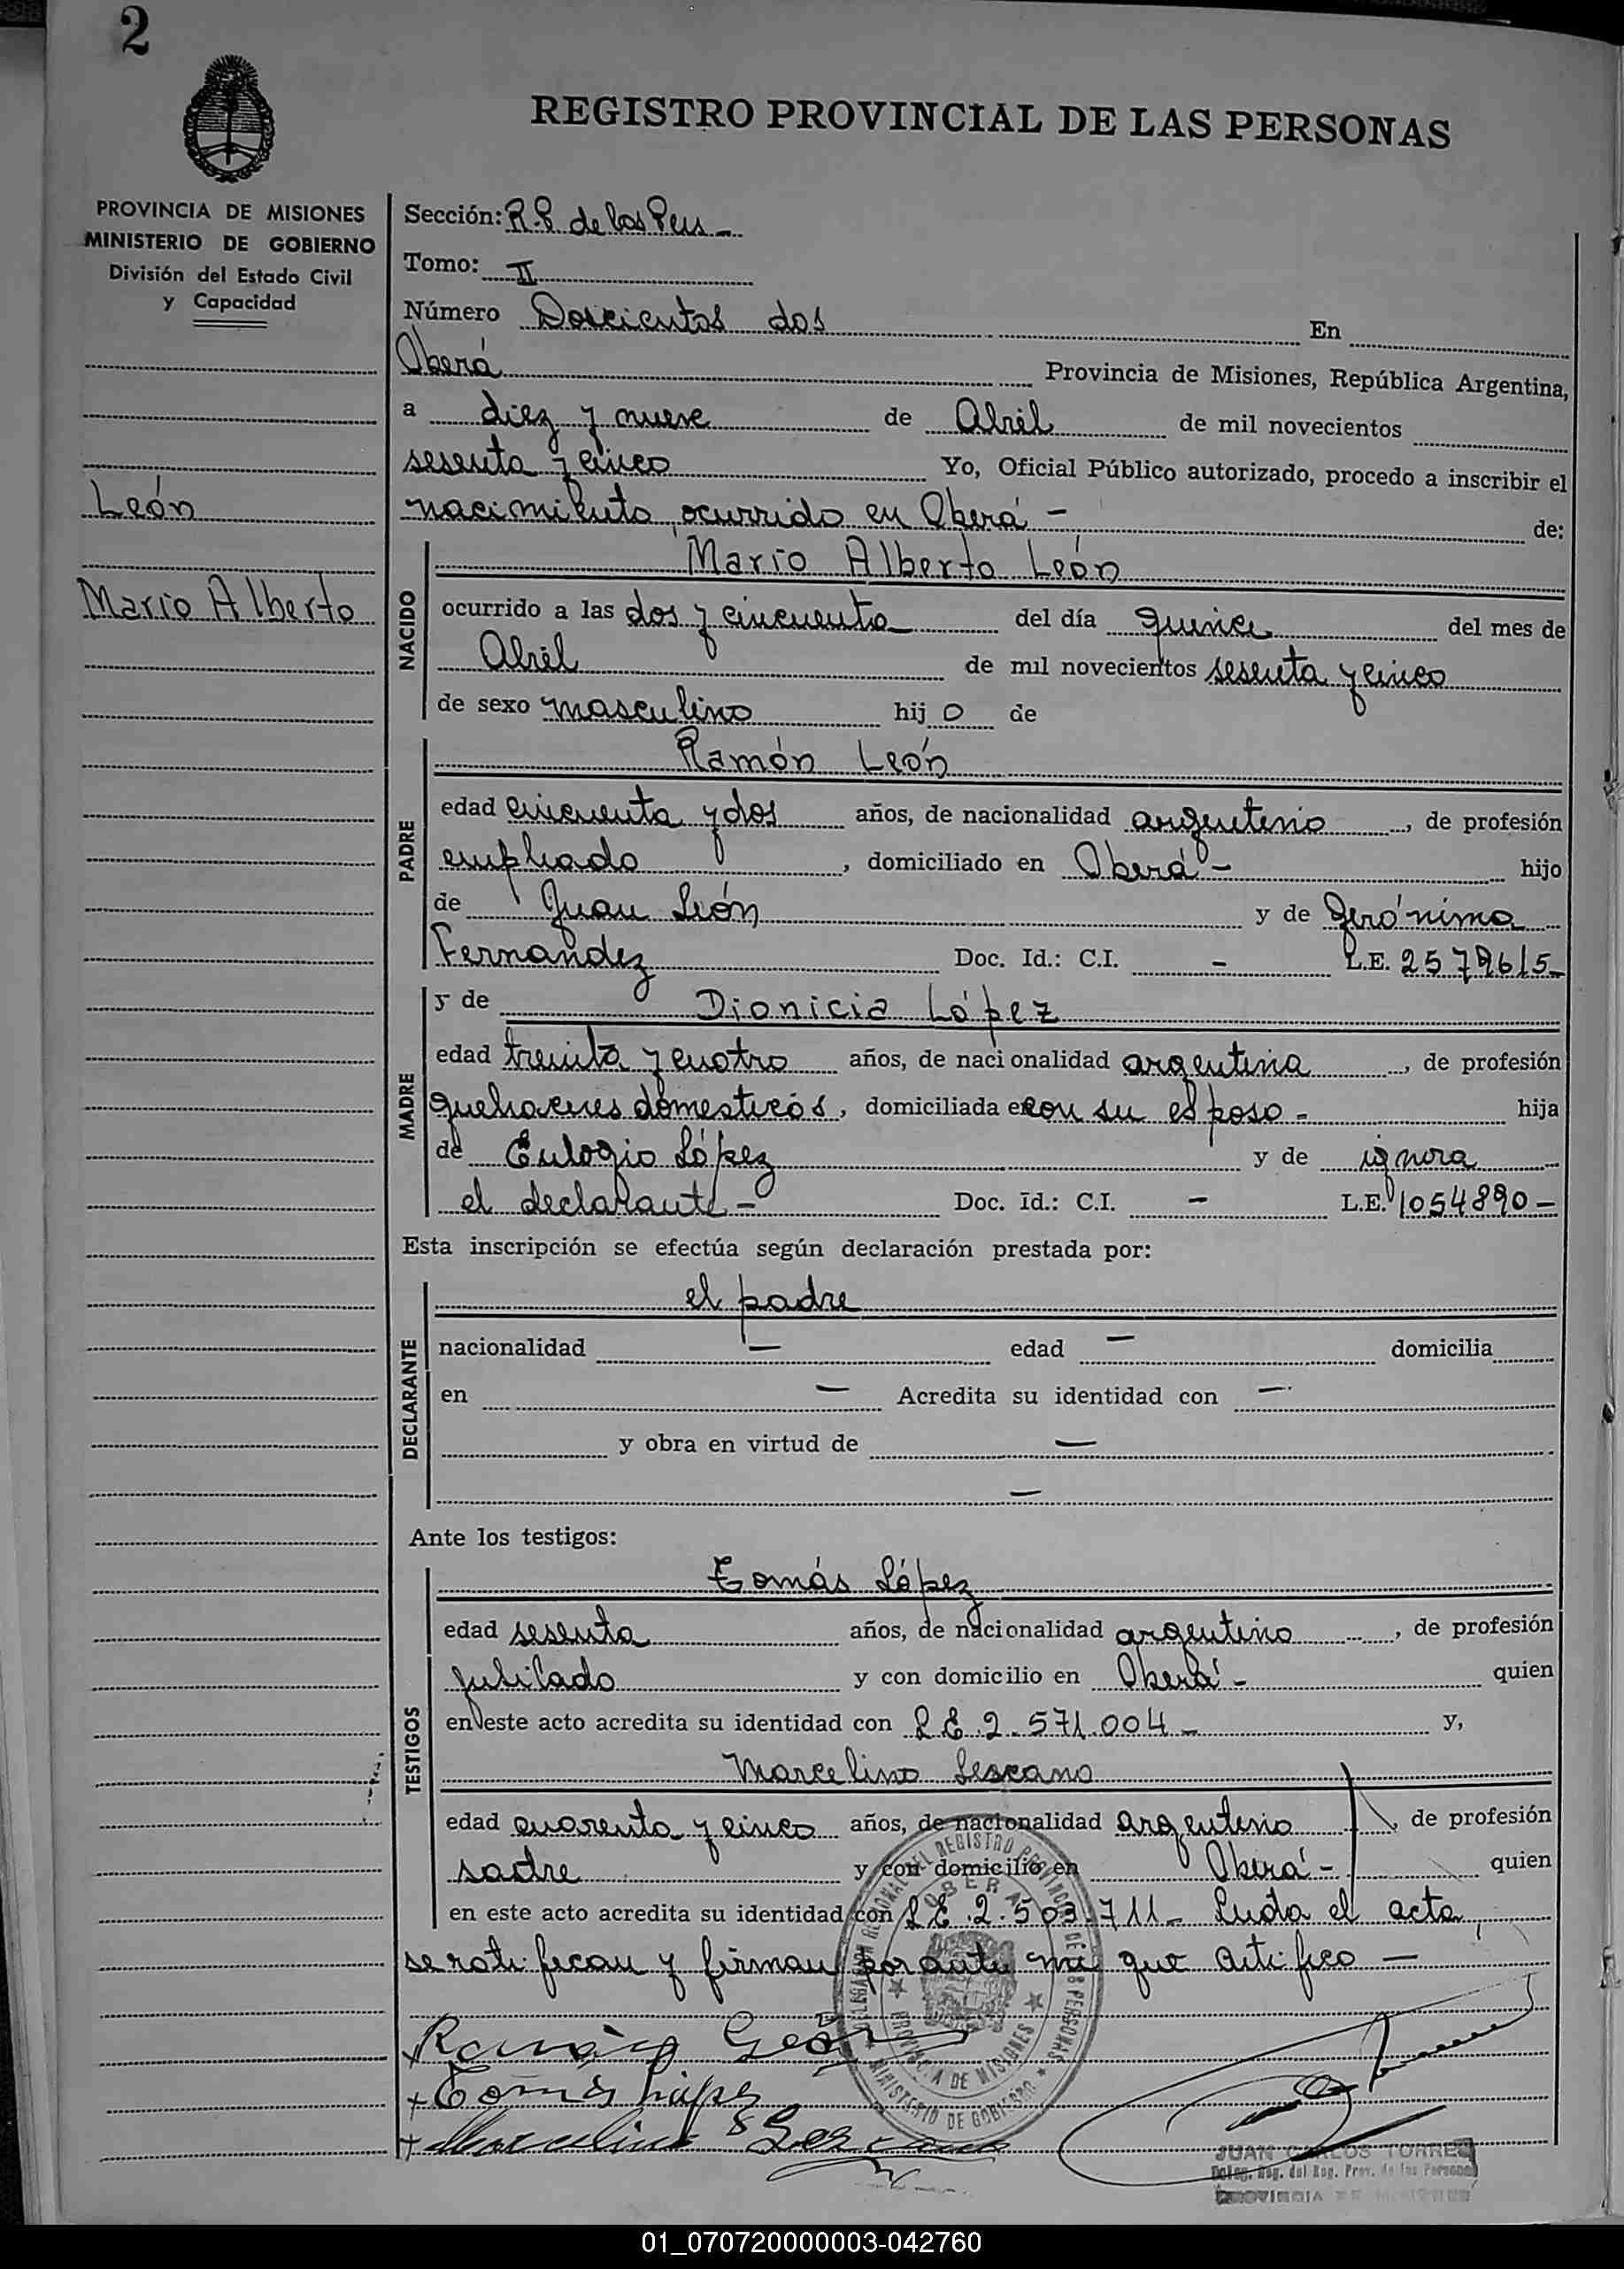 2
REGISTRO PROVINCIAL DE LAS PERSONAS
PROVINCIA DE MISIONES
MINISTERIO DE GOBIERNO
División del Estado Civil
y Capacidad
León
Mario Alberto
Sección: R.P. de las Pers -
Tomo: II
Número Doscientos dos En
Oberá Provincia de Misiones, República Argentina,
a diez y nueve de Abril de mil novecientos
sesenta y cinco Yo, Oficial Público autorizado, procedo a inscribir el
nacimiento ocurrido en Oberá - de:
NACIDO
Mario Alberto León
ocurrido a las dos y cincuenta del día quince del mes de
Abril de mil novecientos sesenta y cinco
de sexo masculino hij o de
PADRE
Ramón León
edad cincuenta y dos años, de nacionalidad argentino, de profesión
empleado, domiciliado en Oberá - hijo
de Juan León y de Gerónima
Fernández Doc. Id.: C.I. - L.E. 2579615-
MADRE
y de Dionicia López
edad treinta y cuatro años, de nacionalidad argentina, de profesión
quehaceres domesticos, domiciliada e con su esposo - hija
de Eulogio López y de ignora
el declarante - Doc. Id.: C.I. - L.E. 1054890-
Esta inscripción se efectúa según declaración prestada por:
DECLARANTE
el padre
nacionalidad — edad — domicilia
en — Acredita su identidad con —
y obra en virtud de —
—
Ante los testigos:
TESTIGOS
Tomás López
edad sesenta años, de nacionalidad argentino, de profesión
jubilado y con domicilio en Oberá - quien
en este acto acredita su identidad con L E 2.571.004 - y,
Marcelino Lescano
edad cuarenta y cinco años, de nacionalidad argentino, de profesión
sastre y con domicilio en Oberá - quien
en este acto acredita su identidad con L E 2.503.711- Leida el acta
se ratifican y firman por ante mi que certifico —
DELEGACION REGIONAL DEL REGISTRO PROVINCIAL DE LAS PERSONAS
OBERA
PROVINCIA DE MISIONES
MINISTERIO DE GOBIERNO
Ramón León
+ Tomás López
+ Marcelino Lescano
JUAN CARLOS TORRES
Deleg. Reg. del Reg. Prov. de las Personas
PROVINCIA DE MISIONES
01_070720000003-042760